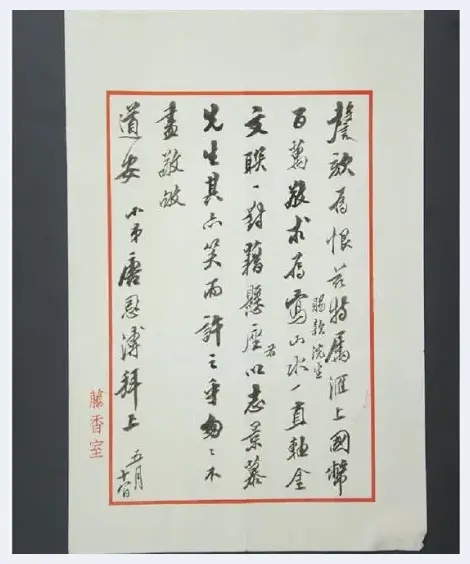 謦欬為恨茲特屬滙上國幣
百萬敬求為寫山水一直軸金
賜款浣生
文聯一對藉懸座右以志景慕
先生其亦笑而許之乎匆匆不
盡敬
道安 小弟唐恩溥拜上 五月十日
藤香室